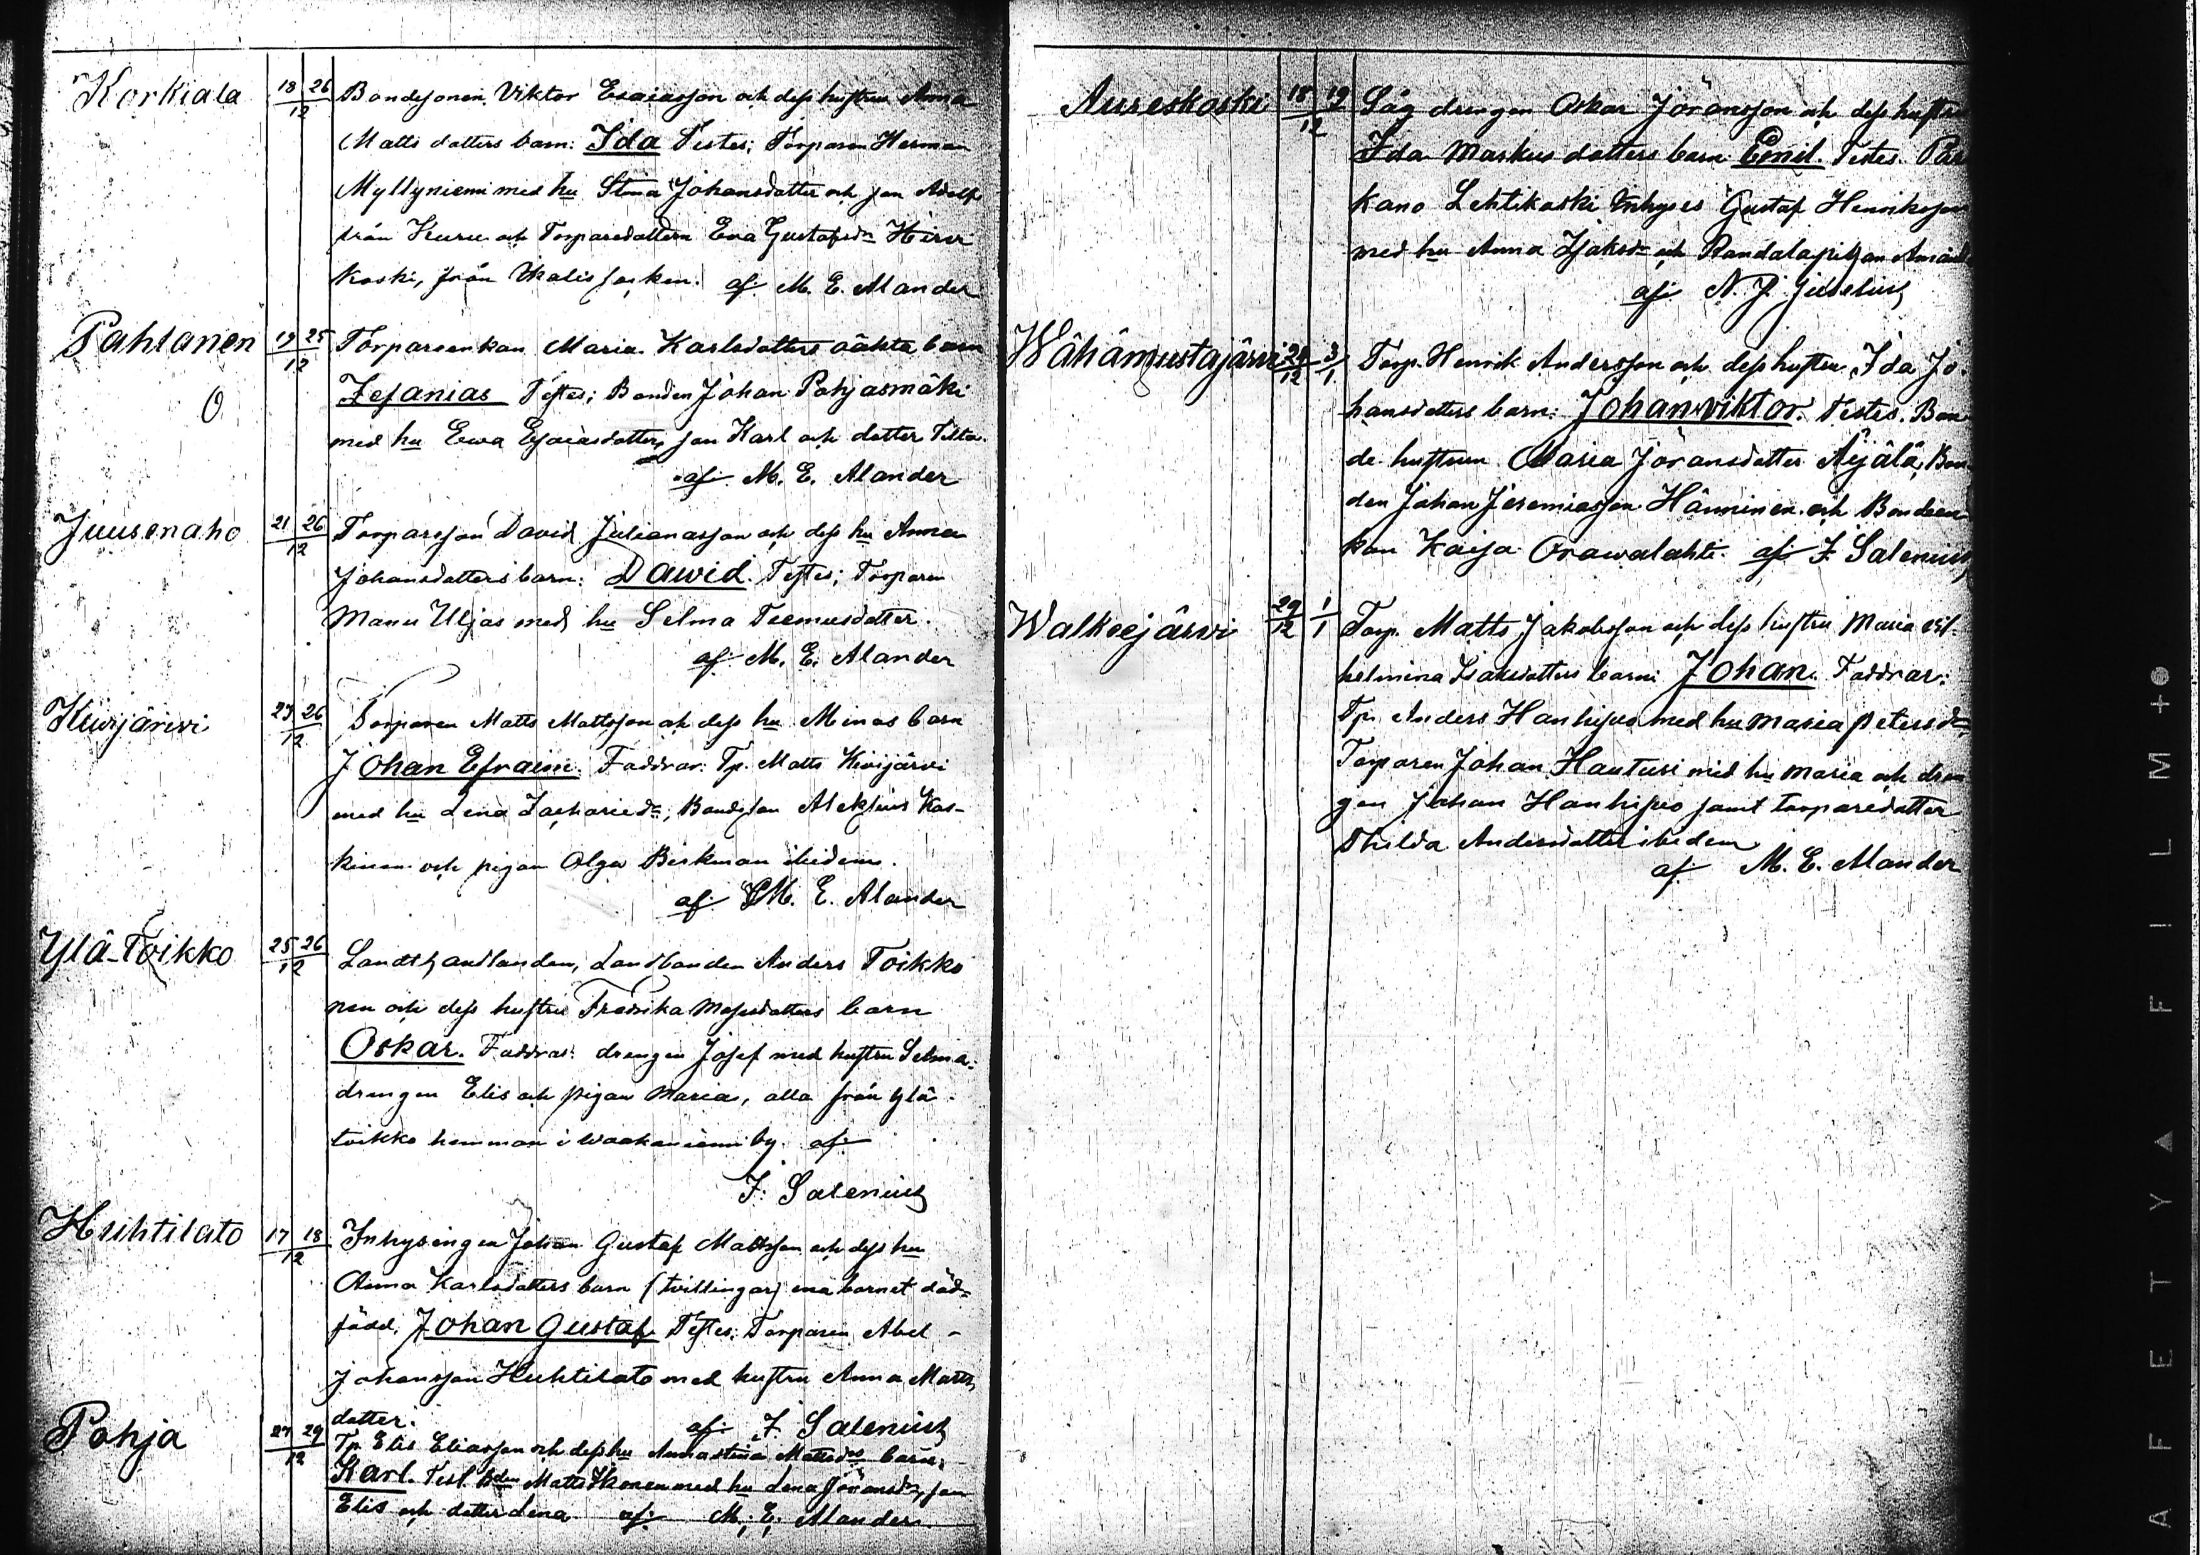 Korkiala 18 26/12 Bondesonen Viktor Esaiasson och dess hustru Anna
Matts dotters barn: Ida Testes; Torparen Herman
Myllyniemi med hu Stina Johansdotter och son Adolf
från Kuru och Torparedottern Eva Gustafsdr Hirvi
koski, från Ikalis socken. af M. E. Alander
Pahtanen 19 25/12 Torpareenkan Maria Karlsdotters oäkta barn
O Zefanias Testes; Bonden Johan Pohjasmäki
med hu Ewa Esaiasdotter, son Karl och dotter Tilta.
af M. E. Alander
Juusenaho 21 26/12 Torparson David Julianasson och dess hu Anna
Johansdotters barn: Dawid. Testes; Torparen
Manu Uljas med hu Selma Teemusdotter.
af M. E. Alander
Kiwijärwi 23 26/12 Torparen Matts Mattsson och dess hu Minas barn
Johan Efraim. Faddrar: Tp. Matts Kivijärvi
med hu Lena Zachariedr, Bondeson Aleksius Kos-
kinen och pigan Olga Berkman ibidem.
af M. E. Alander
Ylä-Toikko 25 26/12 Landthandlanden, Landbonden Anders Toikko
nen och dess hustru Fredrika Mosesdotters barn
Oskar. Faddrar: drengen Josef med hustru Selma,
drengen Elis och pigan Maria, alla från Ylä
toikko hemman i Waakaniemi by. af
F. Salenius
Huhtilato 17 18/12 Inhysingen Johan Gustaf Mattsson och dess hu
Anna Karlsdotters barn (tvillingar) ena barnet död-
född, Johan Gustaf Testes: Torparen Abel
Johansson Huhtilato med hustru Anna Matts
dotter. af F. Salenius
Pohja 27 29/12 Tp. Elis Eliasson och dess hu Annastina Mattsdrs barn:
Karl. Test. Bden Matts Ikonen med hu Lena Jöransdr, son
Elis och dotter Lena af M. E. Alander
Aureskoski 18 19/12 Såg drengen Oskar Jöransson och dess hustru
Ida Markus dotters barn Emil. Testes. Par
kano Lehtikoski Inhyses Gustaf Henriksson
med hu Anna Isaksdr och Randalapigan Amanda
af N. J. Juselius
Wähämustajärvi 24/12 3/1 Torp. Henrik Andersson och dess hustru Ida Jo-
hansdotters barn: Johan Viktor. Testes. Bon
de hustrun Maria Jöransdotter Äijälä, Bon
den Johan Jeremiasson Hänninen och Bondeen
kan Kaisa Orawalahti. af F Salenius
Walkeejärwi 29/12 1/1 Torp. Matts Jakobsson och dess hustru Maria vil-
helmina Isaksdotters barn: Johan. Faddrar:
Tp. Anders Hanhijuo med hu Maria Petersdr,
Torparen Johan Hautusi med hu Maria och dren
gen Johan Hanhijuo samt torparedotter
Thilda Andersdotter ibidem
af M. E. Alander
AFETY FILM